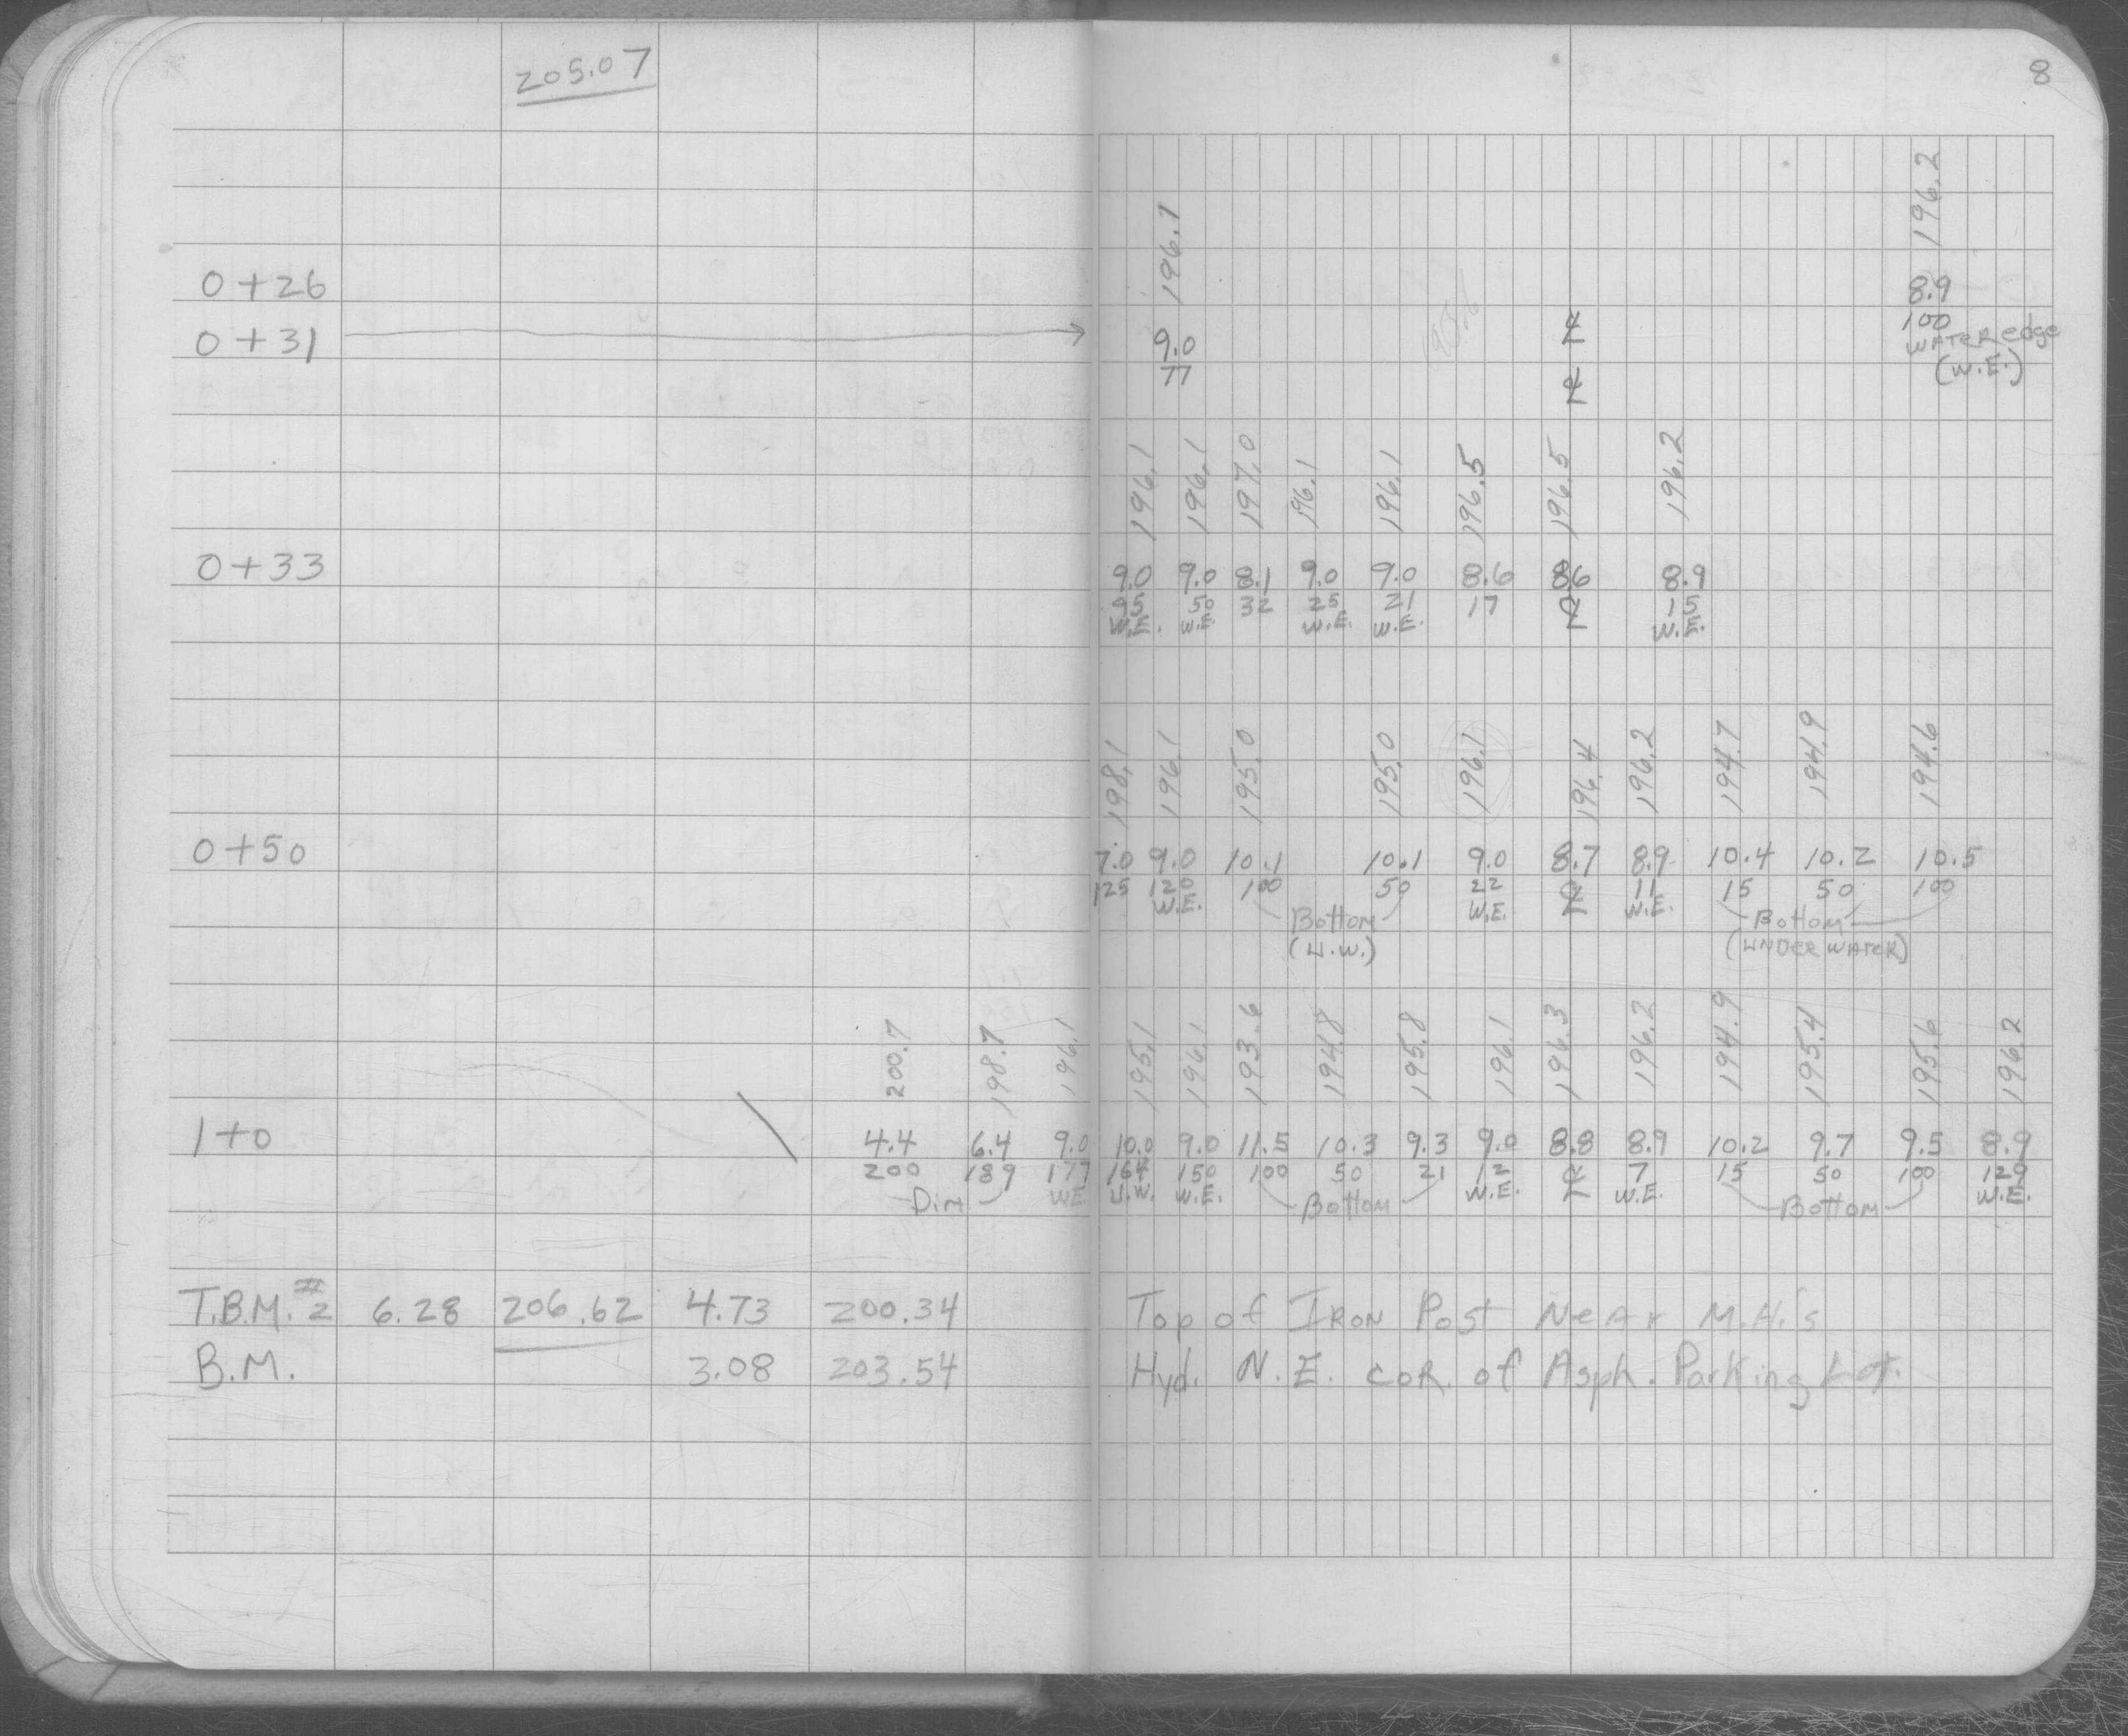 205.07
8
196.2
196.1
0+26
8.9
100
0+31
9.0
℄
WATER edge
77
(W.E.)
℄
196.1 196.1 197.0 196.1 196.1 196.5 196.5 196.2
0+33
9.0 9.0 8.1 9.0 9.0 8.6 8.6 8.9
95 50 32 25 21 17 ℄ 15
W.E. W.E. W.E. W.E. W.E.
198.1 196.1 195.0 195.0 196.1 196.4 196.2 194.7 194.9 194.6
0+50
7.0 9.0 10.1 10.1 9.0 8.7 8.9 10.4 10.2 10.5
125 120 100 50 22 ℄ 11 15 50 100
W.E. Bottom W.E. W.E. Bottom
(U.W.) (UNDER WATER)
200.7 198.7 196.1 195.1 196.1 193.6 194.8 195.8 196.1 196.3 196.2 194.9 195.4 195.6 196.2
1+0
4.4 6.4 9.0 10.0 9.0 11.5 10.3 9.3 9.0 8.8 8.9 10.2 9.7 9.5 8.9
200 189 177 164 150 100 50 21 12 ℄ 7 15 50 100 129
Dirt WE U.W. W.E. Bottom W.E. W.E. Bottom W.E.
T.B.M. #2 6.28 206.62 4.73 200.34 Top of IRON Post Near M.H.'s
B.M. 3.08 203.54 Hyd. N.E. COR. of Asph. Parking Lot.